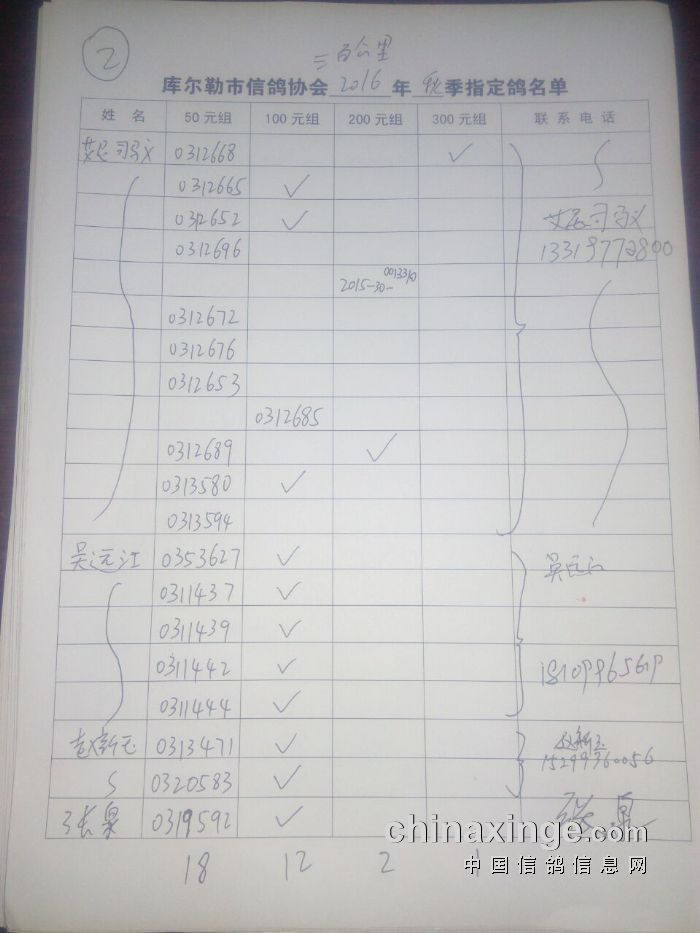 2
三百公里
库尔勒市信鸽协会 2016 年 秋 季指定鸽名单
姓 名 50元组 100元组 200元组 300元组 联系电话
艾尼司马义 0312668 ✓
0312665 ✓
0312652 ✓ 艾尼司马义
0312696 13319772800
2015-30-0013310
0312672
0312676
0312653
0312685
0312689 ✓
0313580 ✓
0313594
吴远江 0353627 ✓ 吴远江
0311437 ✓
0311439 ✓
0311442 ✓ 18109965619
0311444 ✓
赵新玉 0313471 ✓ 赵新玉 15299360056
0320583 ✓
张泉 0319592 ✓ 张泉
18 12 2 1
chinaxinge.com
中国信鸽信息网